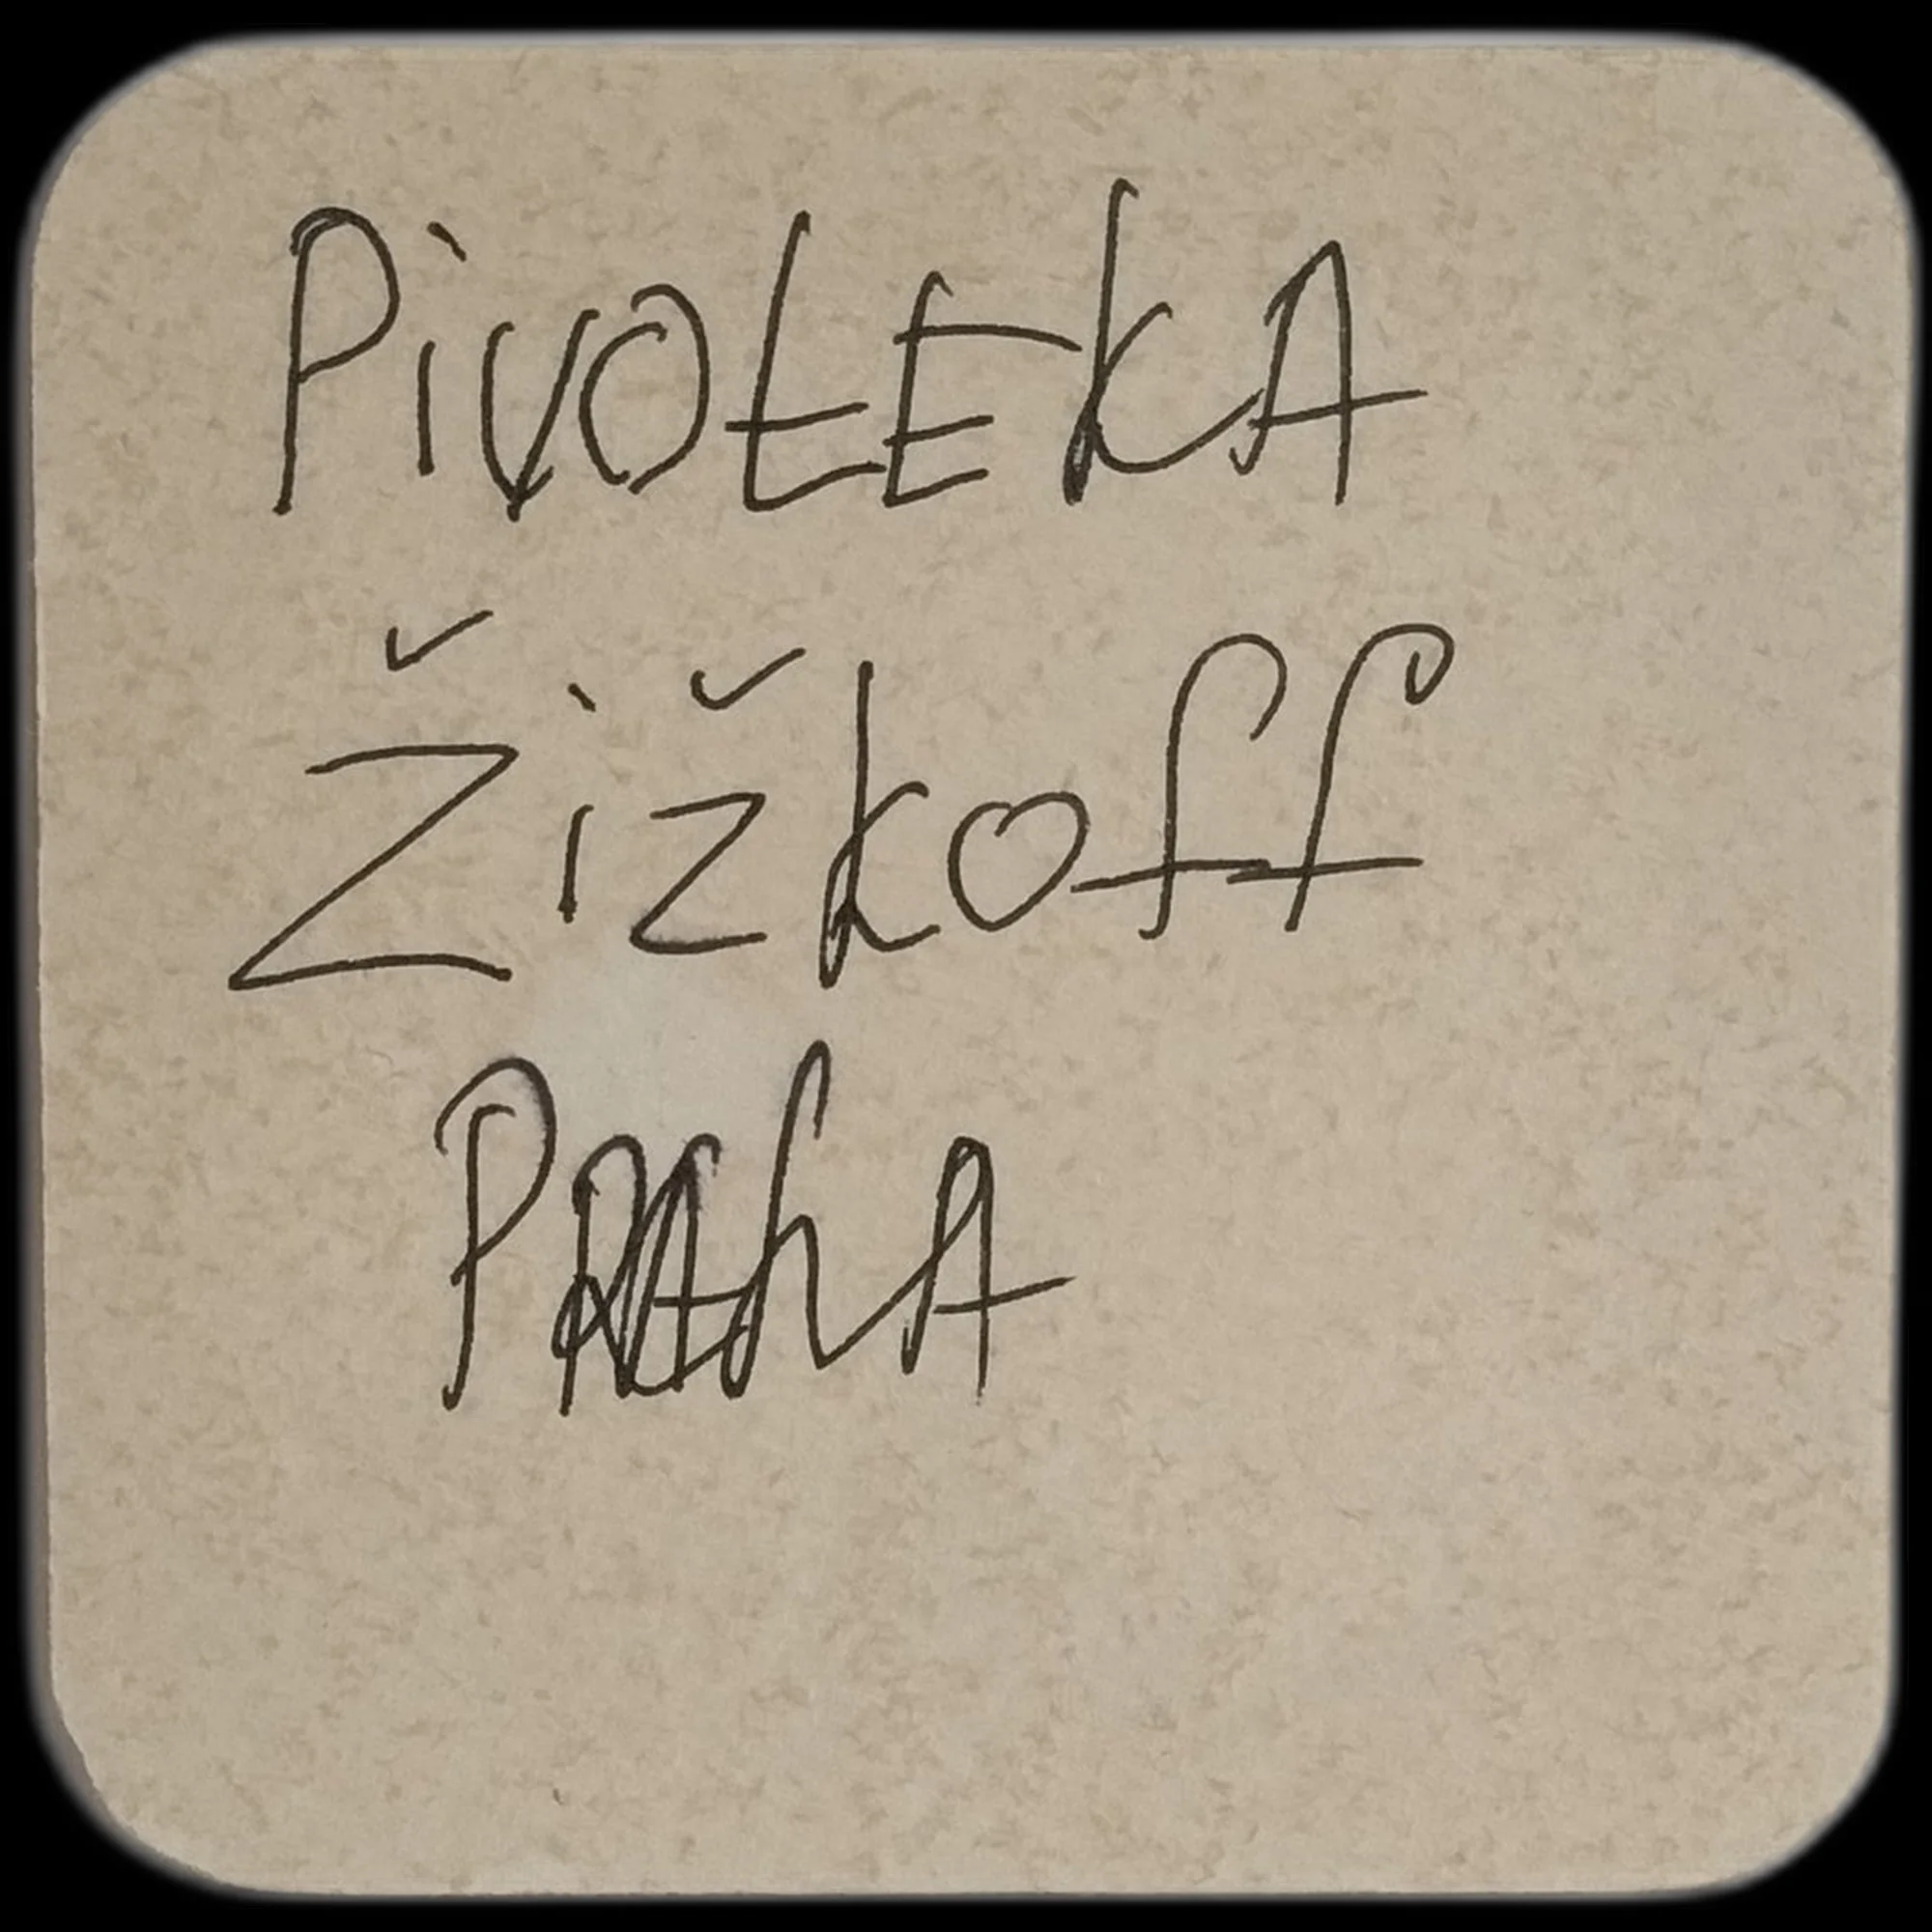 PivotEkA
Žižkoff
PRAhA